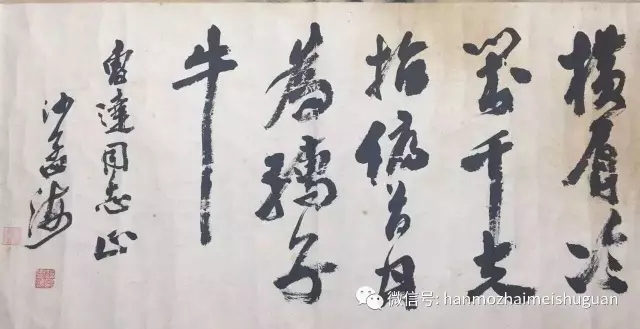 横眉冷
對千夫
指俯首甘
為孺子
牛
達同志正
沙孟海
微信号: hanmozhaimeishuguan